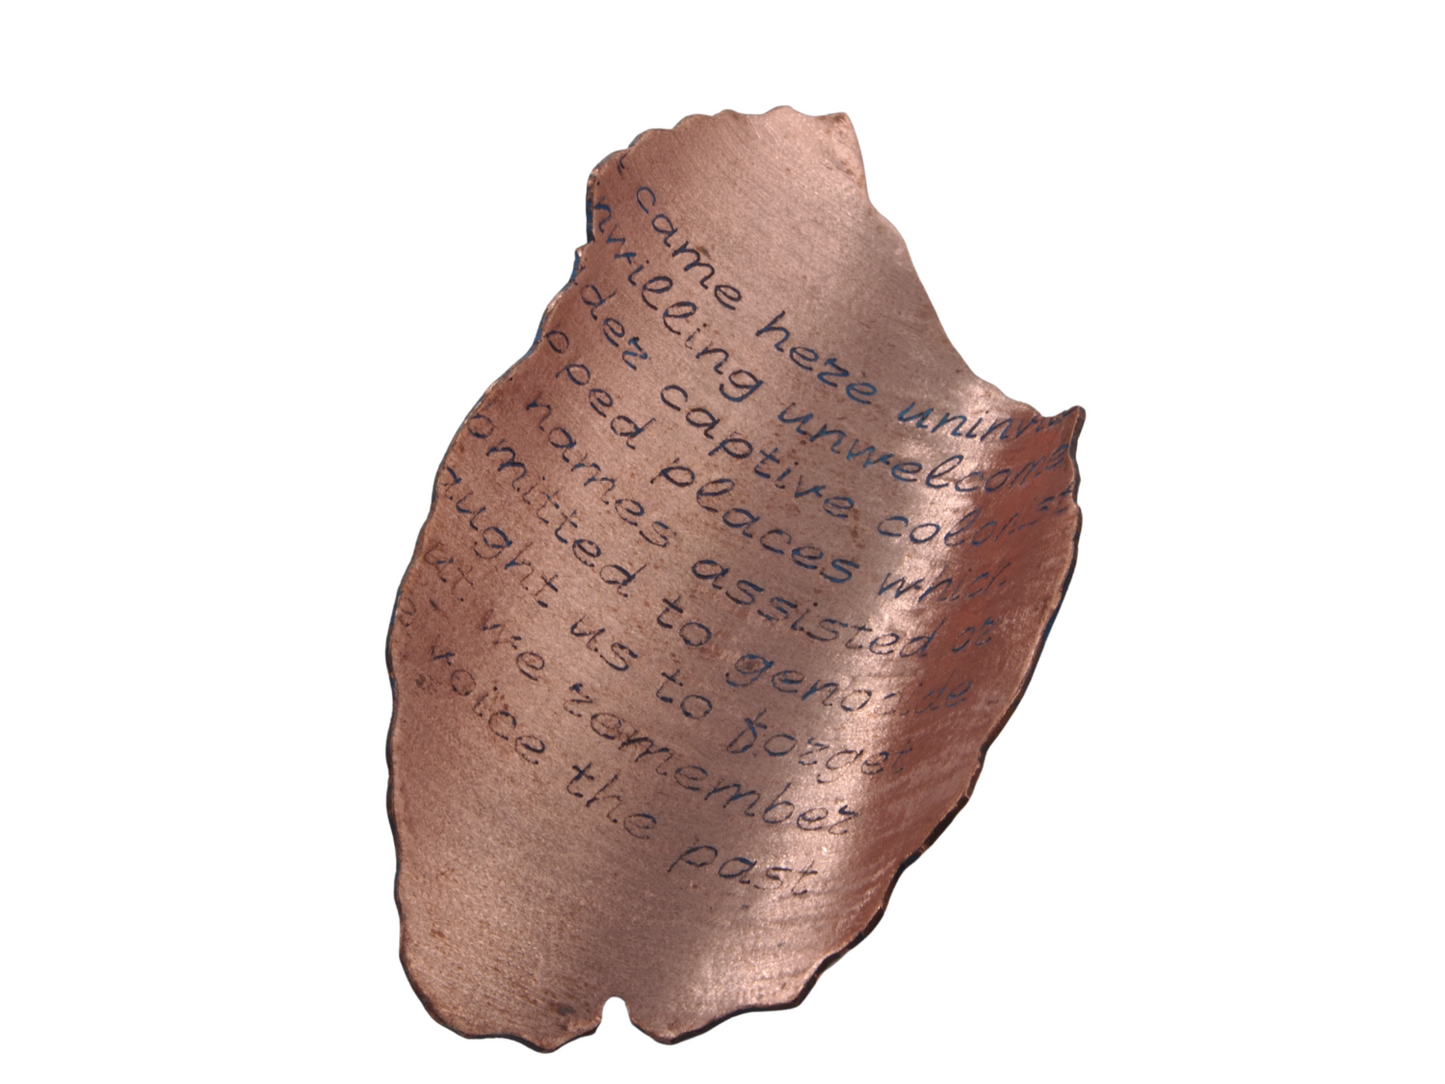 came here unin
nwilling unwelcome
der captive colonist
pped places which
names assisted
omitted to genocide
aught us to forget
ut we remember
voice the past